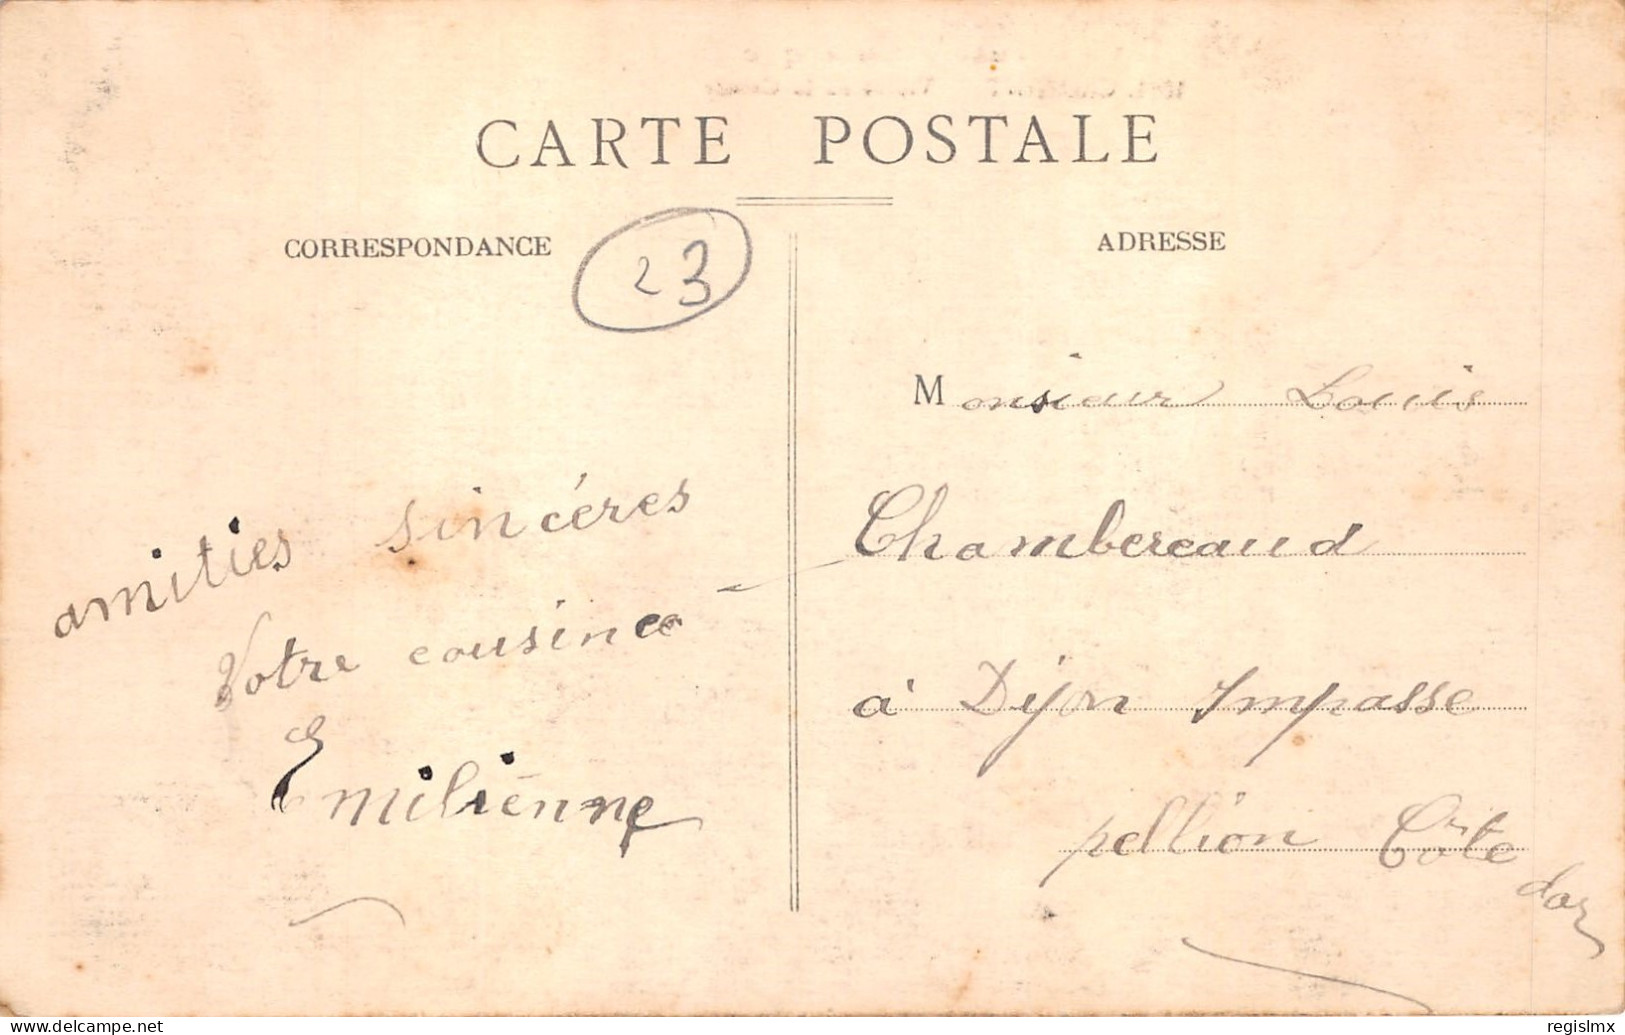 CARTE POSTALE
CORRESPONDANCE
23
ADRESSE
amitiés sincéres
Votre cousine
Emilienne
Monsieur Louis
Chambereaud
à Dijon Impasse
pellion Côte
dor
www.delcampe.net
regislmx